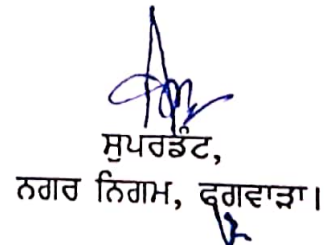 ਸੁਪਰਡੰਟ,
ਨਗਰ ਨਿਗਮ, ਫਗਵਾੜਾ।